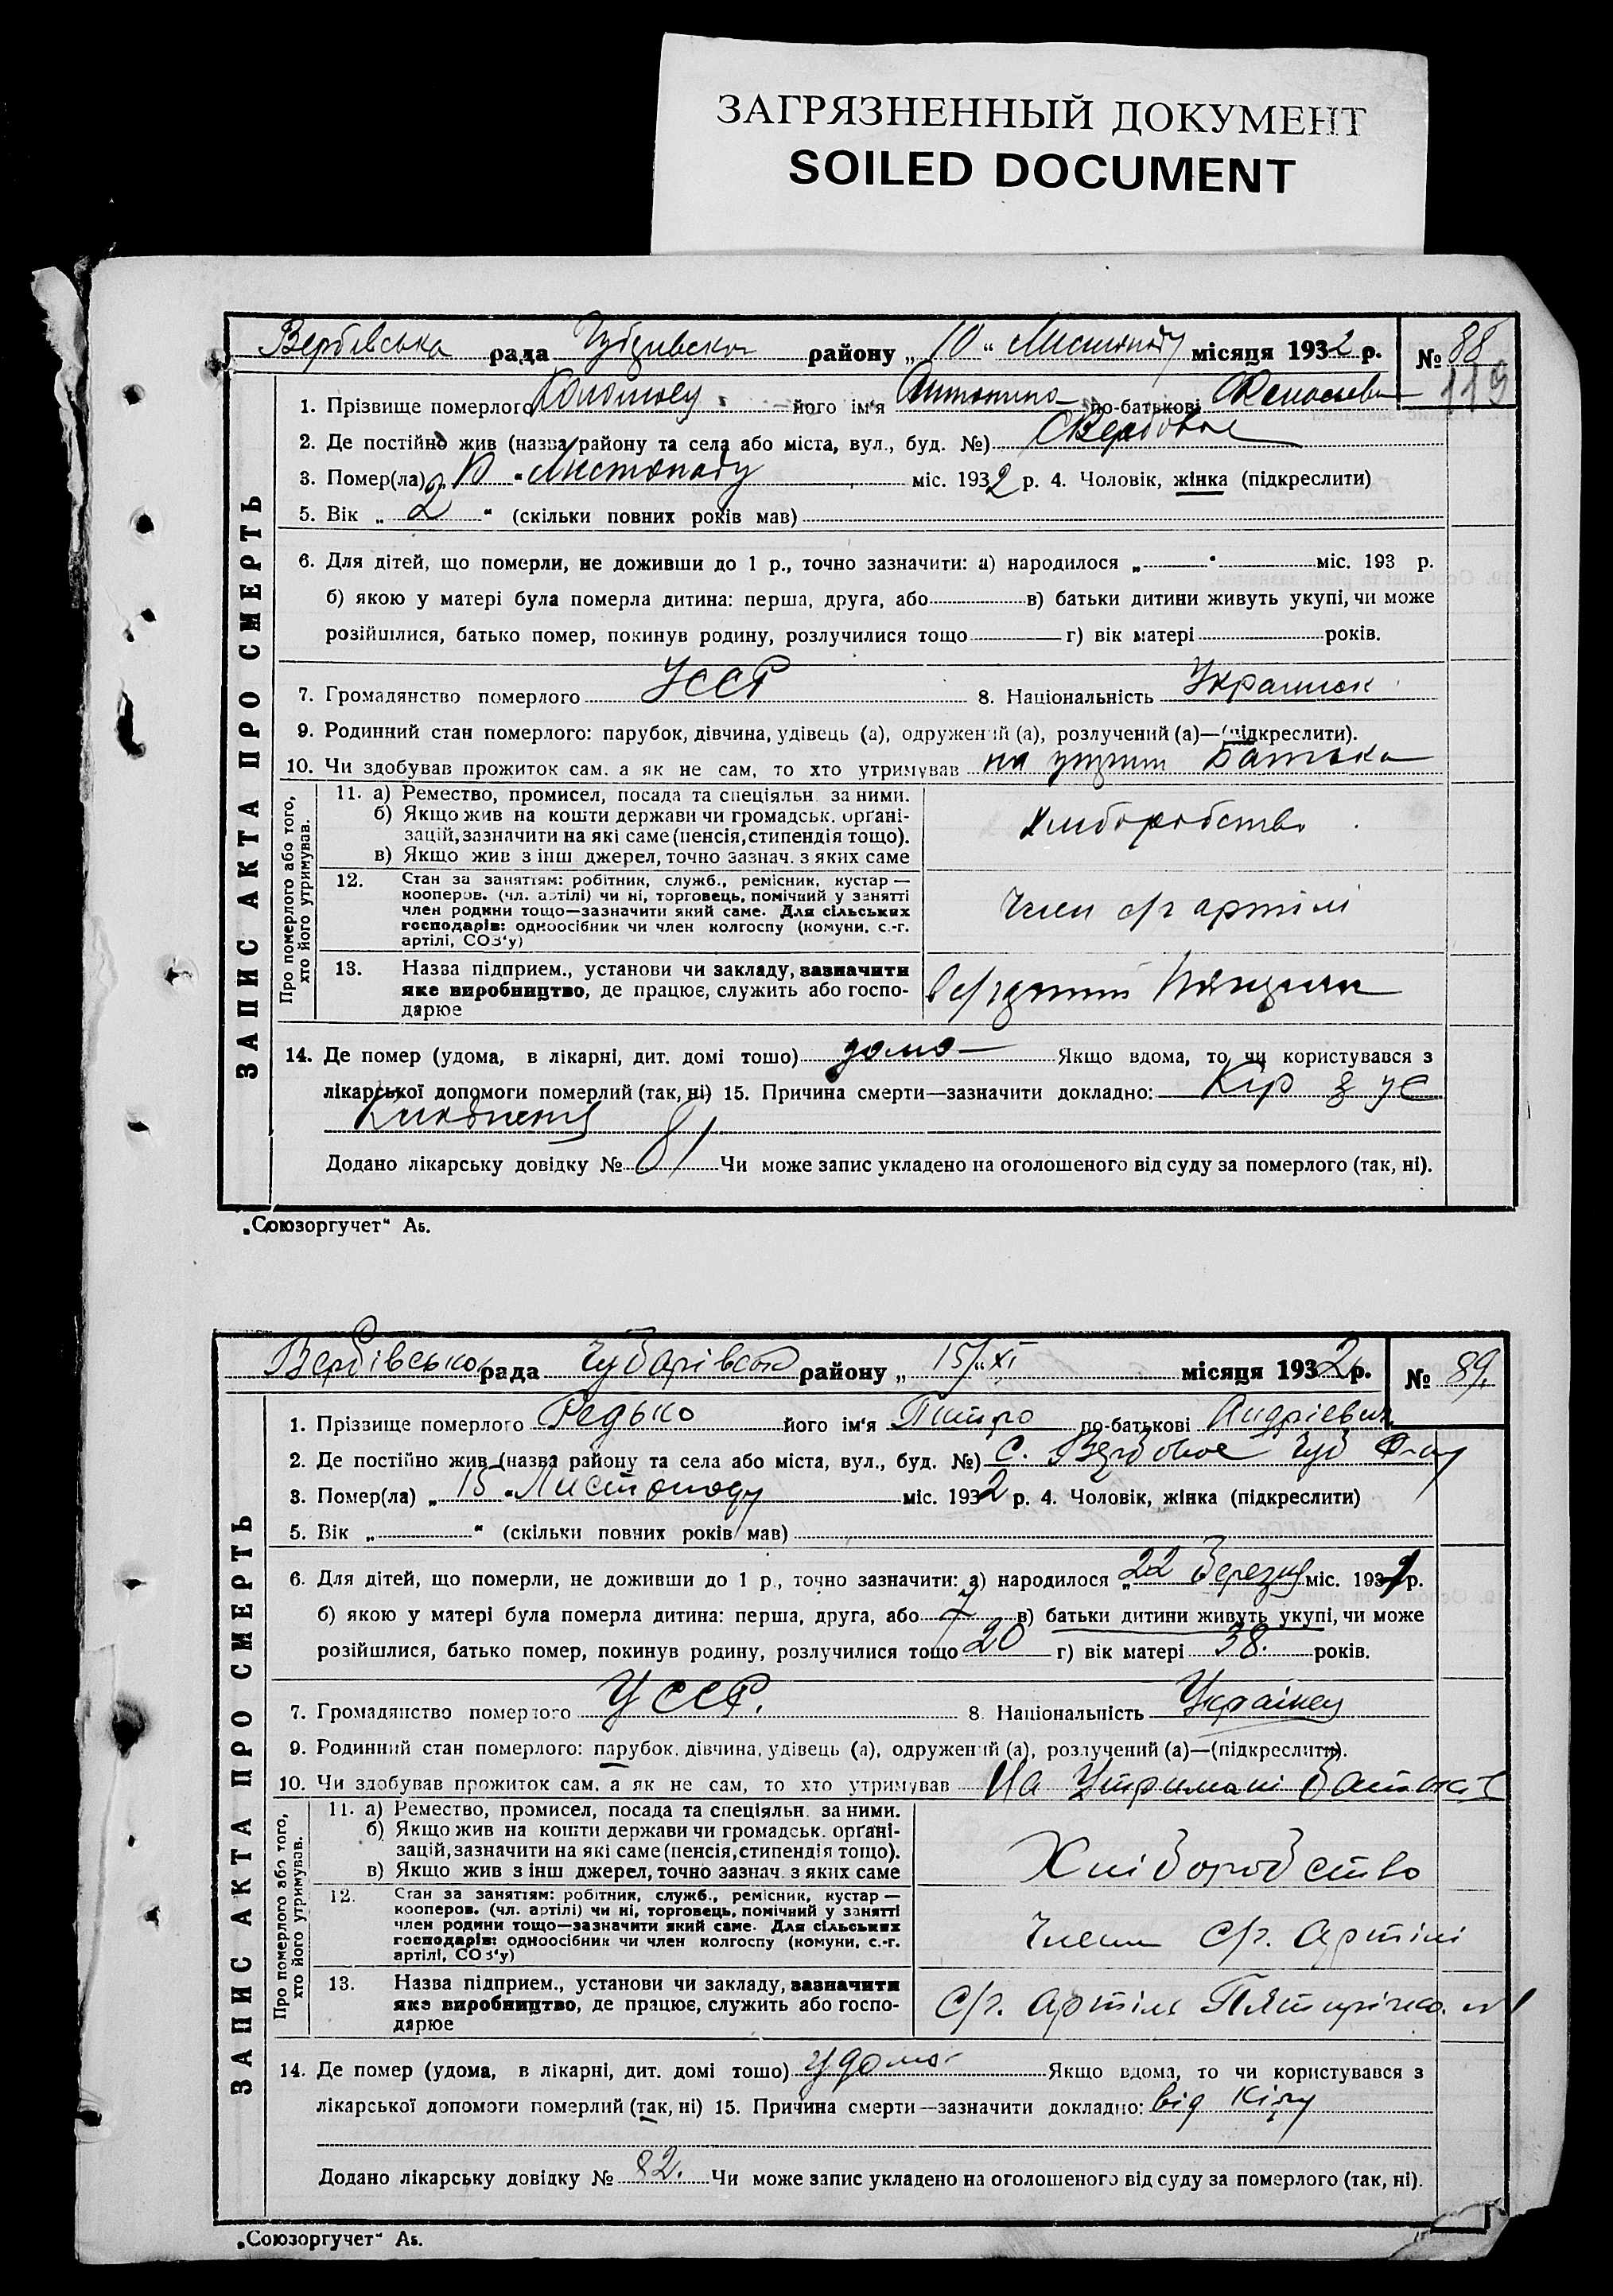 ЗАГРЯЗНЕННЫЙ ДОКУМЕНТ
SOILED DOCUMENT
Вербівська рада району „ 10 “ Листопаду місяця 1932 р. № 88
119
1. Прізвище померлого його ім'я Антонина по-батькові
2. Де постійно жив (назва району та села або міста, вул., буд. №) Вербовое
3. Помер(ла) „ 10 “ Листопаду міс. 1932 р. 4. Чоловік, жінка (підкреслити)
5. Вік „ 2 “ (скільки повних років мав)
6. Для дітей, що померли, не доживши до 1 р., точно зазначити: а) народилося „ “ міс. 193 р.
б) якою у матері була померла дитина: перша, друга, або в) батьки дитини живуть укупі, чи може
розійшлися, батько помер, покинув родину, розлучилися тощо г) вік матері років.
7. Громадянство померлого УССР 8. Національність
9. Родинний стан померлого: парубок, дівчина, удівець (а), одружений (а), розлучений (а)—(підкреслити).
10. Чи здобував прожиток сам, а як не сам, то хто утримував на Батька
Про померлого або того, хто його утримував.
11. а) Ремество, промисел, посада та спеціяльн. за ними.
б) Якщо жив на кошти держави чи громадськ. органі-
зацій, зазначити на які саме (пенсія, стипендія тощо).
в) Якщо жив з інш джерел, точно зазнач. з яких саме
Хлиборобство
12. Стан за заняттям: робітник, служб., ремісник, кустар —
кооперов. (чл. артілі) чи ні, торговець, помічний у занятті
член родини тощо—зазначити який саме. Для сільських
господарів: одноосібник чи член колгоспу (комуни, с.-г.
артілі, СОЗ'у)
Член с/г артілі
13. Назва підприєм., установи чи закладу, зазначити
яке виробництво, де працює, служить або госпо-
дарює
14. Де помер (удома, в лікарні, дит. домі тошо) дома Якщо вдома, то чи користувався з
лікарської допомоги померлий (так, ні) 15. Причина смерти—зазначити докладно: Кір з
Додано лікарську довідку № 81 Чи може запис укладено на оголошеного від суду за померлого (так, ні).
ЗАПИС АКТА ПРО СМЕРТЬ
„Союзоргучет“ А5.
Вербівсько рада Чубарівсько району „ 15/XI “ місяця 1932 р. № 89.
1. Прізвище померлого Редько його ім'я Питро по-батькові Андрієвич
2. Де постійно жив (назва району та села або міста, вул., буд. №) с. Вербовое Чуб
3. Помер(ла) „ 15 “ Листопаду міс. 1932 р. 4. Чоловік, жінка (підкреслити)
5. Вік „ “ (скільки повних років мав)
6. Для дітей, що померли, не доживши до 1 р., точно зазначити: а) народилося „ 22 Березня міс. 193 р.
б) якою у матері була померла дитина: перша, друга, або 7 в) батьки дитини живуть укупі, чи може
розійшлися, батько помер, покинув родину, розлучилися тощо 20 г) вік матері 38. років.
7. Громадянство померлого УССР. 8. Національність Українец
9. Родинний стан померлого: парубок, дівчина, удівець (а), одружений (а), розлучений (а)—(підкреслити).
10. Чи здобував прожиток сам, а як не сам, то хто утримував На Утримані Батьків
Про померлого або того, хто його утримував.
11. а) Ремество, промисел, посада та спеціяльн. за ними.
б) Якщо жив на кошти держави чи громадськ. органі-
зацій, зазначити на які саме (пенсія, стипендія тощо).
в) Якщо жив з інш джерел, точно зазнач. з яких саме
Хліборобство
12. Стан за заняттям: робітник, служб., ремісник, кустар —
кооперов. (чл. артілі) чи ні, торговець, помічний у занятті
член родини тощо—зазначити який саме. Для сільських
господарів: одноосібник чи член колгоспу (комуни, с.-г.
артілі, СОЗ'у)
Член с/г. Артілі
13. Назва підприєм., установи чи закладу, зазначити
яке виробництво, де працює, служить або госпо-
дарює
с/г. Артіль Пятирічка. №1
14. Де помер (удома, в лікарні, дит. домі тошо) удома Якщо вдома, то чи користувався з
лікарської допомоги померлий (так, ні) 15. Причина смерти—зазначити докладно: від Кіру
Додано лікарську довідку № 82. Чи може запис укладено на оголошеного від суду за померлого (так, ні).
ЗАПИС АКТА ПРО СМЕРТЬ
„Союзоргучет“ А5.